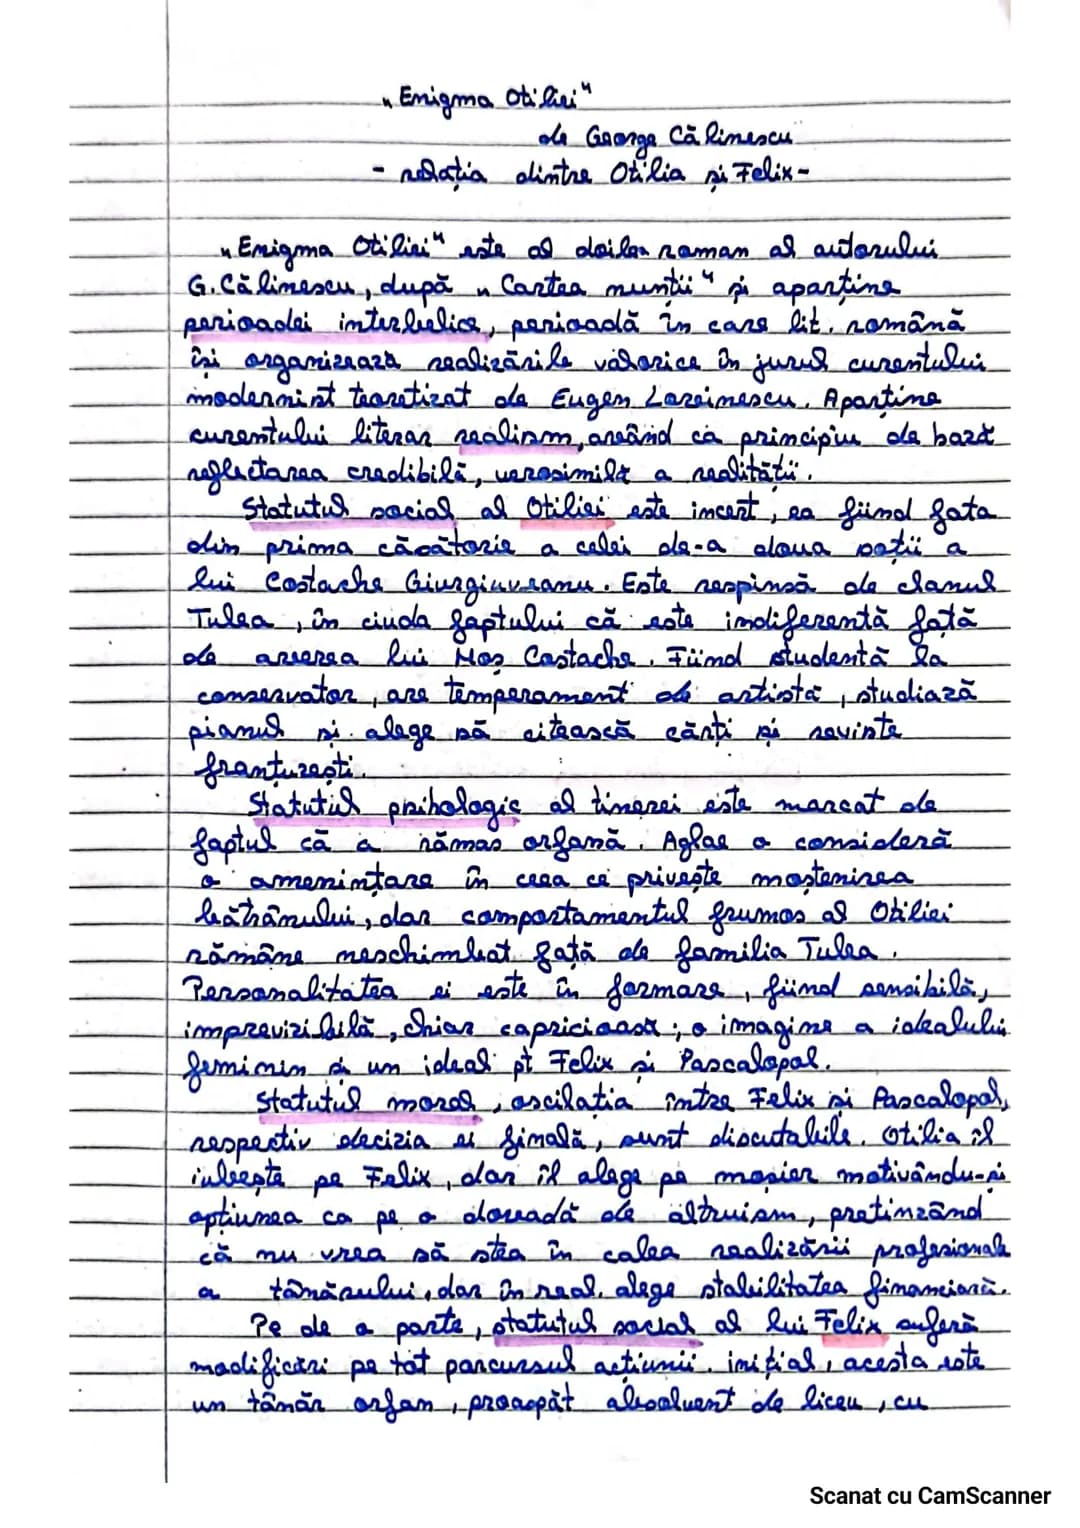 „Enigma Otiliei"
de George Călinescu
- relația dintre Otilia și Felix-
„Enigma Otiliei" este al doilea roman al autorului
G.Călinescu, după „Cartea nunții" și aparține
perioadei interbelice, perioadă în care lit. română
își organizează realizările valorice în jurul curentului
modernist teoretizat de Eugen Lovinescu. Aparține
curentului literar realism, având ca principiu de bază
reflectarea credibilă, verosimilă a realității.
Statutul social al Otiliei este incert, ea fiind fata
din prima căsătorie a celei de-a doua soții a
lui Costache Giurgiuveanu. Este respinsă de clanul
Tulea, în ciuda faptului că este indiferentă față
de averea lui Moș Costache. Fiind studentă la
conservator, are temperament de artistă, studiază
pianul și alege să citească cărți și reviste
franțuzești.
Statutul psihologic al tinerei este marcat de
faptul că a rămas orfană. Aglae o consideră
o amenințare în ceea ce privește moștenirea
bătrânului, dar comportamentul frumos al Otiliei
rămâne neschimbat față de familia Tulea.
Personalitatea ei este în formare, fiind sensibilă,
imprevizibilă, chiar capricioasă; o imagine a idealului
feminin și un ideal pt Felix și Pascalopol.
Statutul moral, oscilația între Felix și Pascalopol,
respectiv decizia ei finală, sunt discutabile. Otilia îl
iubește pe Felix, dar îl alege pe moșier motivându-și
opțiunea ca pe o dovadă de altruism, pretinzând
că nu vrea să stea în calea realizării profesionale
a tânărului, dar în real. alege stabilitatea financiară.
Pe de o parte, statutul social al lui Felix suferă
modificări pe tot parcursul acțiunii. inițial, acesta este
un tânăr orfan, proaspăt absolvent de liceu, cu
Scanat cu CamScanner